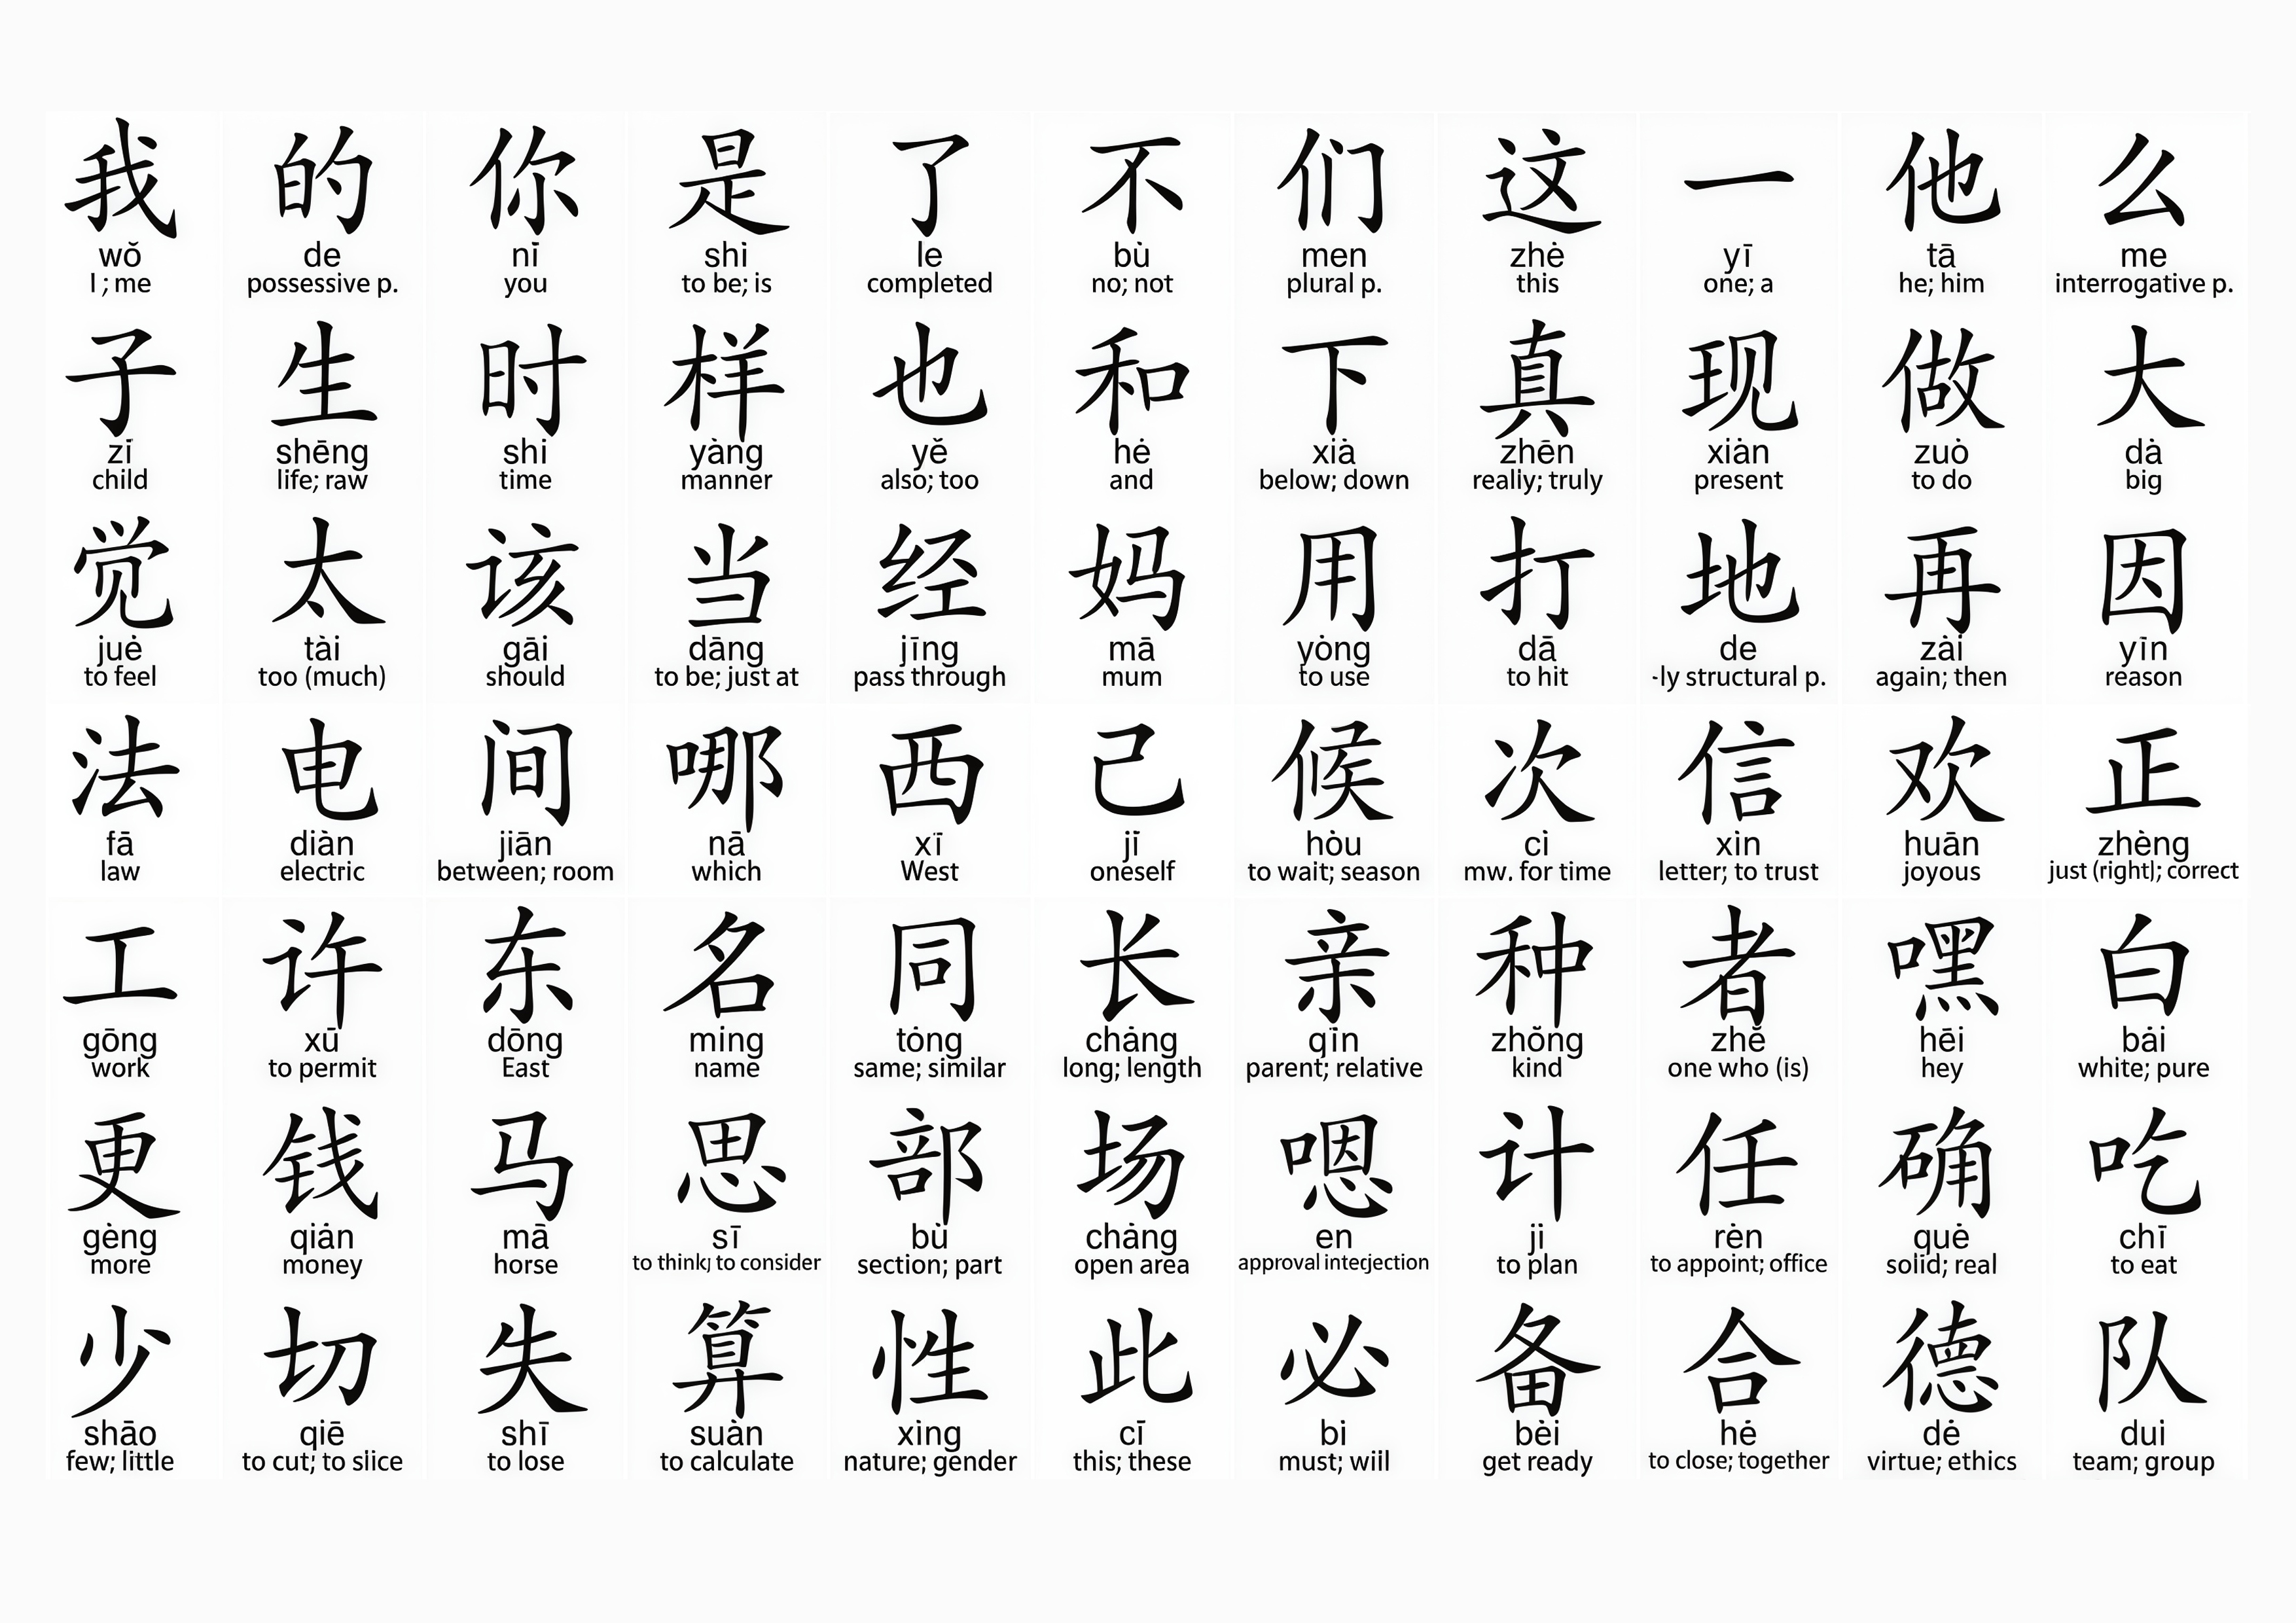 我 的 你 是 了 不 们 这 一 他 么
wǒ de nǐ shì le bù men zhė yī tā me
I ; me possessive p. you to be; is completed no; not plural p. this one; a he; him interrogative p.
子 生 时 样 也 和 下 真 现 做 大
zǐ shēng shi yàng yě hė xiȧ zhēn xiȧn zuȯ dȧ
child life; raw time manner also; too and below; down realiy; truly present to do big
觉 太 该 当 经 妈 用 打 地 再 因
juė tài gāi dāng jīng mā yȯng dā de zài yīn
to feel too (much) should to be; just at pass through mum to use to hit -ly structural p. again; then reason
法 电 间 哪 西 己 候 次 信 欢 正
fā diàn jiān nā xī jǐ hȯu cì xìn huān zhèng
law electric between; room which West oneself to wait; season mw. for time letter; to trust joyous just (right); correct
工 许 东 名 同 长 亲 种 者 嘿 白
gōng xū dōng ming tȯng chȧng qīn zhǒng zhě hēi bȧi
work to permit East name same; similar long; length parent; relative kind one who (is) hey white; pure
更 钱 马 思 部 场 嗯 计 任 确 吃
gèng qiȧn mā sī bù chȧng en ji rėn quė chī
more money horse to think; to consider section; part open area approval intecjection to plan to appoint; office solid; real to eat
少 切 失 算 性 此 必 备 合 德 队
shāo qiē shī suàn xìng cī bi bèi hė dė dui
few; little to cut; to slice to lose to calculate nature; gender this; these must; wiil get ready to close; together virtue; ethics team; group